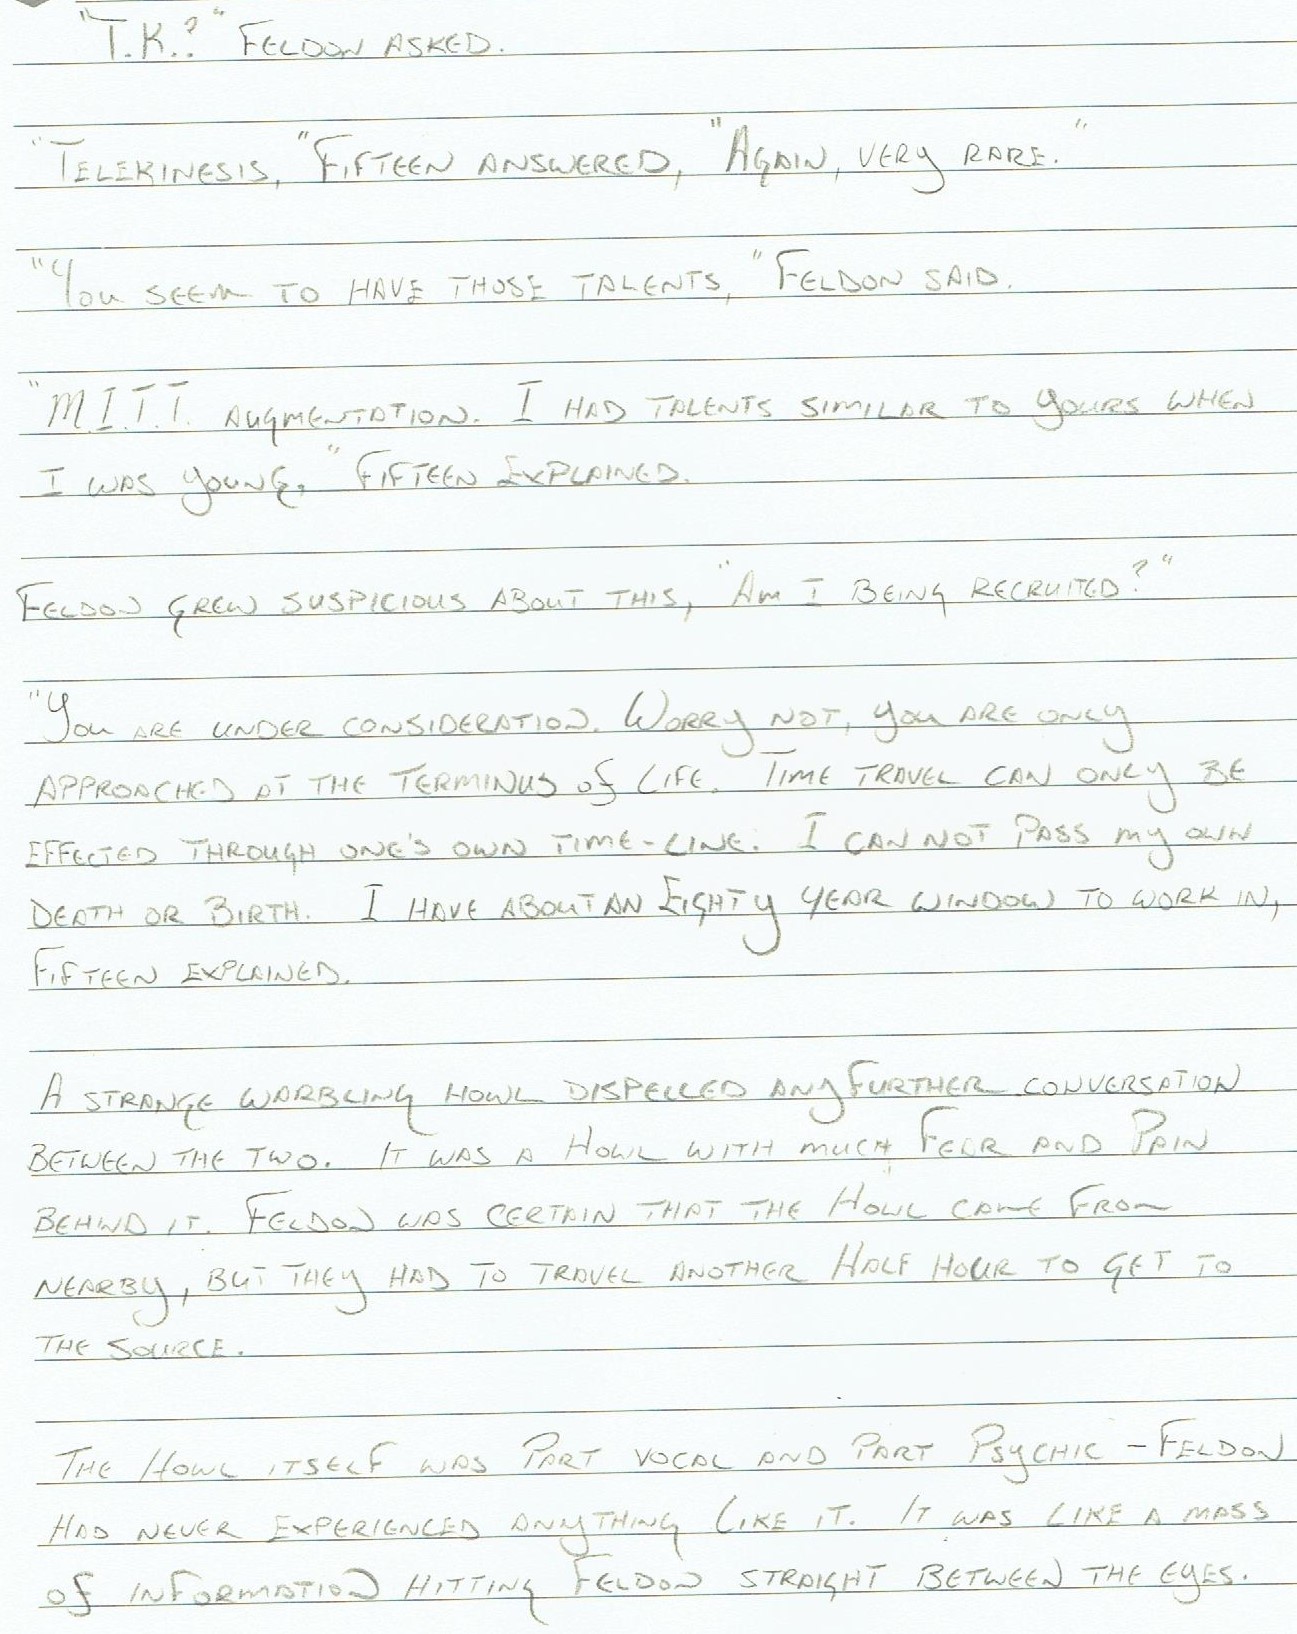 "T.K.?" Feldon asked.
"Telekinesis," Fifteen answered, "Again, very rare."
"You seem to have those talents," Feldon said.
"M.I.T.T. augmentation. I had talents similar to yours when
I was young," Fifteen explained.
Feldon grew suspicious about this, "Am I being recruited?"
"You are under consideration. Worry not, you are only
approached at the terminus of life. Time travel can only be
effected through one's own time-line. I can not pass my own
death or birth. I have about an eighty year window to work in,
Fifteen explained.
A strange warbling howl dispelled any further conversation
between the two. It was a howl with much fear and pain
behind it. Feldon was certain that the howl came from
nearby, but they had to travel another half hour to get to
the source.
The howl itself was part vocal and part psychic - Feldon
had never experienced anything like it. It was like a mass
of information hitting Feldon straight between the eyes.